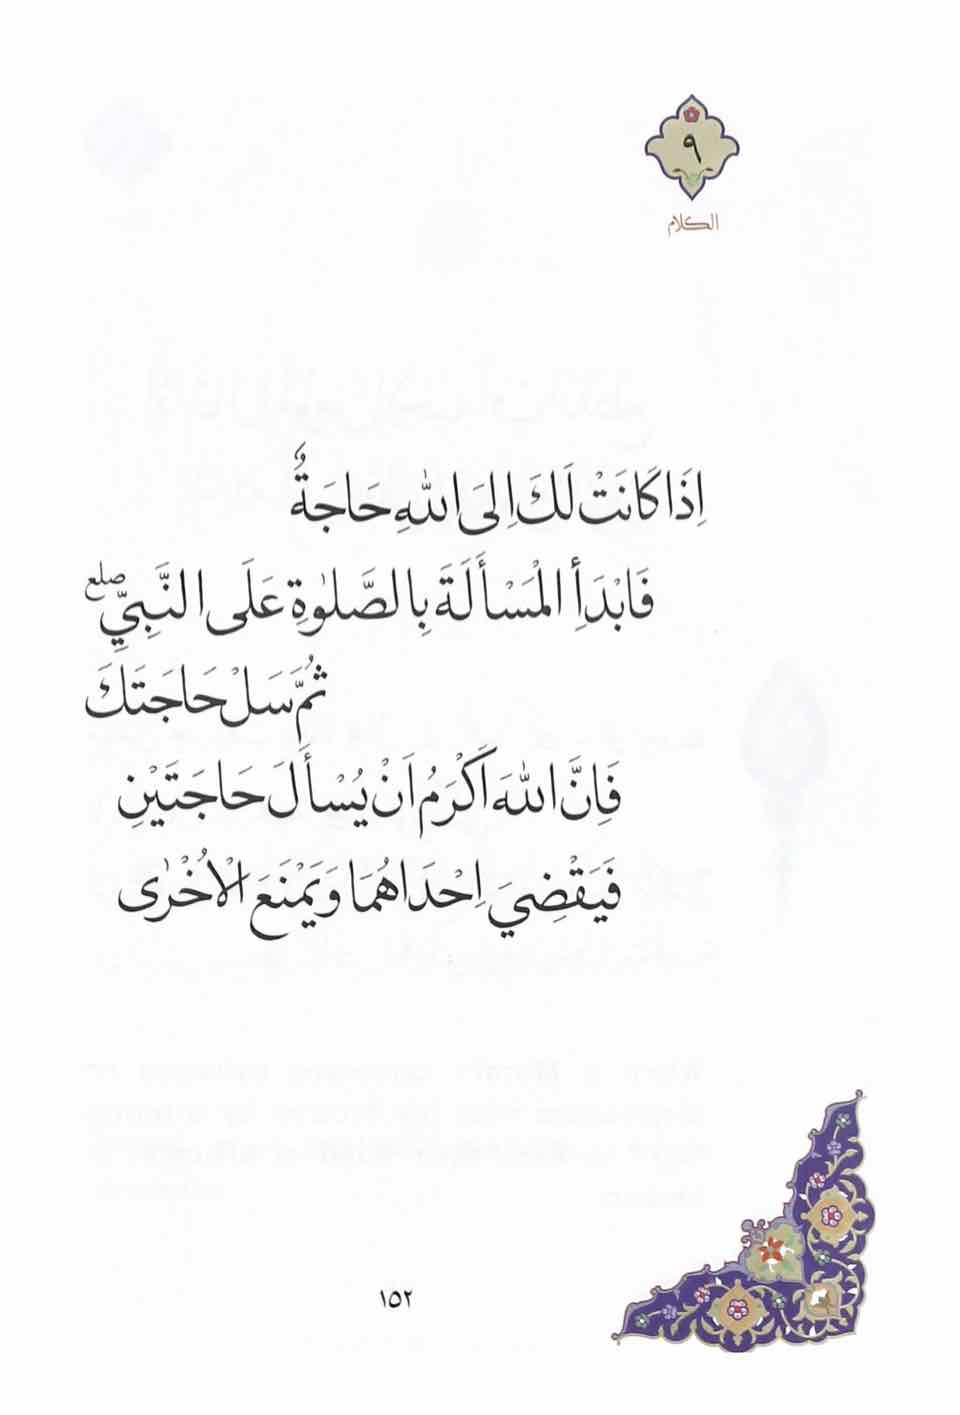 ٩
الكلام
اِذَا كَانَتْ لَكَ اِلَى اللّٰهِ حَاجَةٌ
فَابْدَأِ الْمَسْأَلَةَ بِالصَّلٰوةِ عَلَى النَّبِيِّ صلع
ثُمَّ سَلْ حَاجَتَكَ
فَاِنَّ اللّٰهَ اَكْرَمُ اَنْ يُسْأَلَ حَاجَتَيْنِ
فَيَقْضِيَ اِحْدَاهُمَا وَيَمْنَعَ الْاُخْرٰى
١٥٢